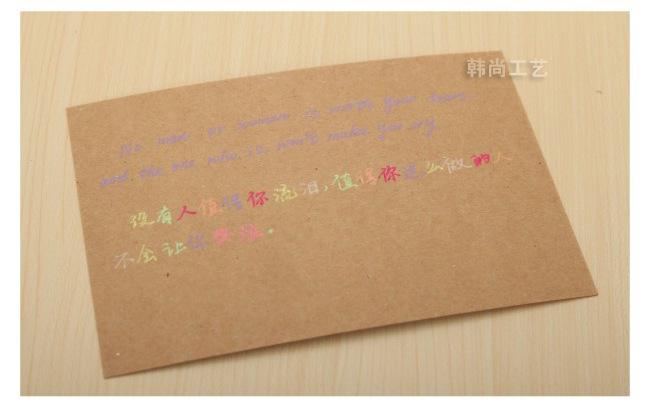 韩尚工艺
No man or woman is worth your tears,
and the one who is, won't make you cry
没有人值得你流泪,值得你这么做的人
不会让你哭泣。